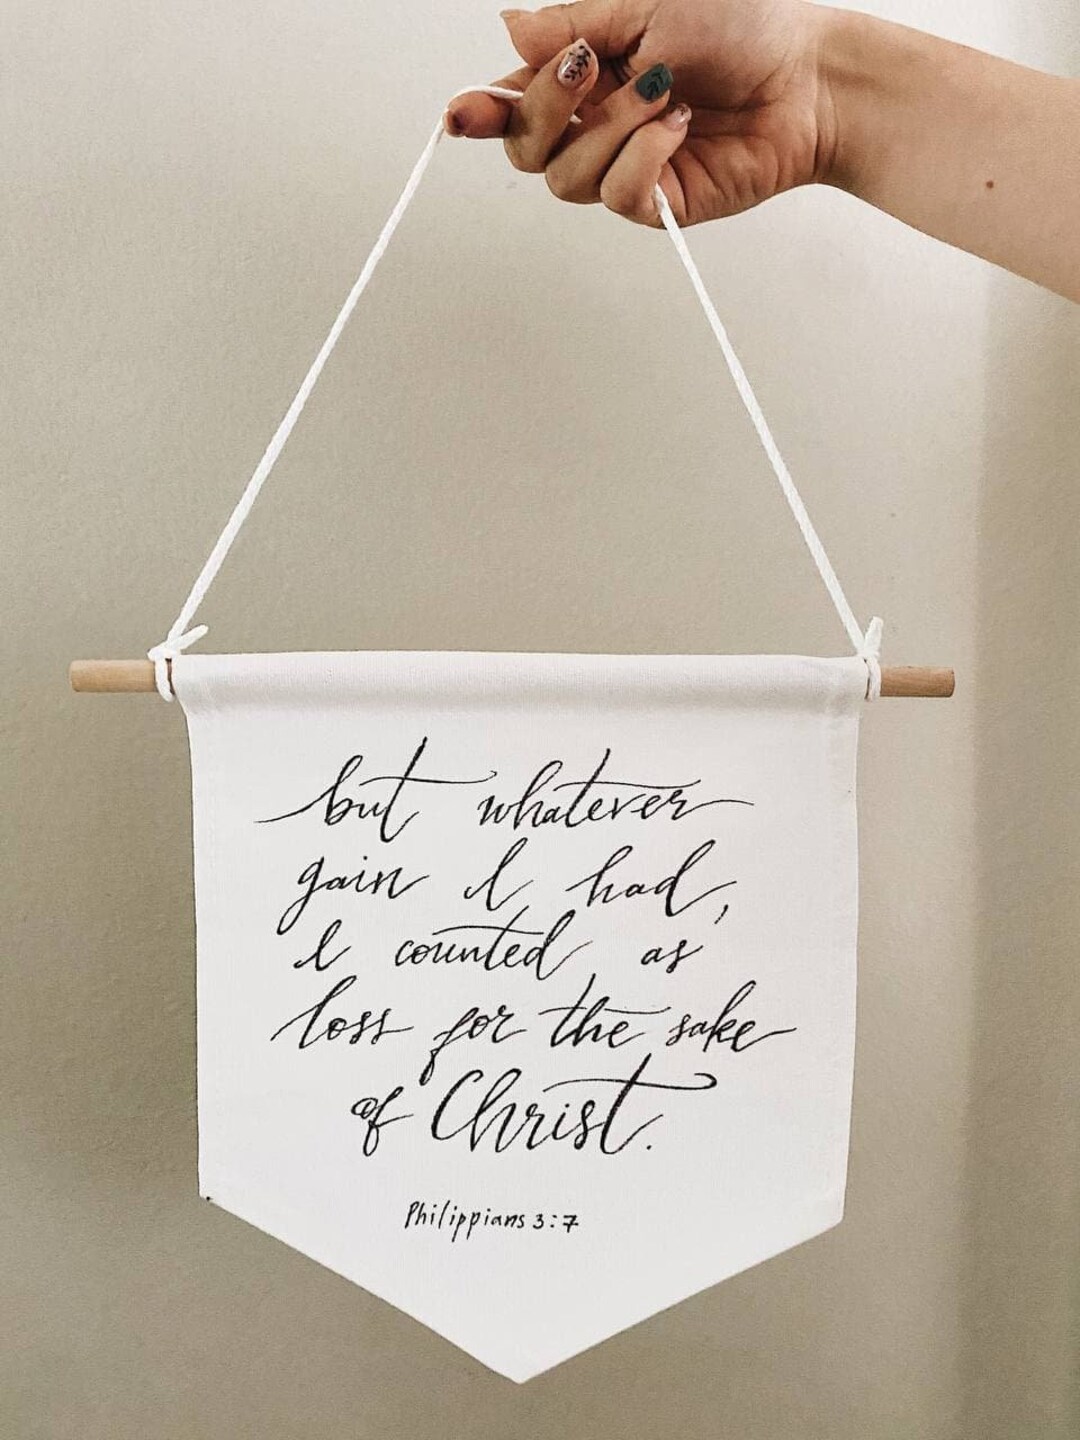 but whatever
gain I had,
I counted as
loss for the sake
of Christ.
Philippians 3:7